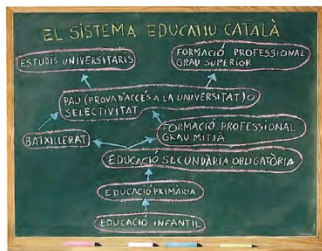 EL SISTEMA EDUCATIU CATALÀ
ESTUDIS UNIVERSITARIS
FORMACIÓ PROFESSIONAL
GRAU SUPERIOR
PAU (PROVA D'ACCÉS A LA UNIVERSITAT) O
SELECTIVITAT
FORMACIÓ PROFESSIONAL
GRAU MITJÀ
BATXILLERAT
EDUCACIÓ SECUNDÀRIA OBLIGATÒRIA
EDUCACIÓ PRIMÀRIA
EDUCACIÓ INFANTIL